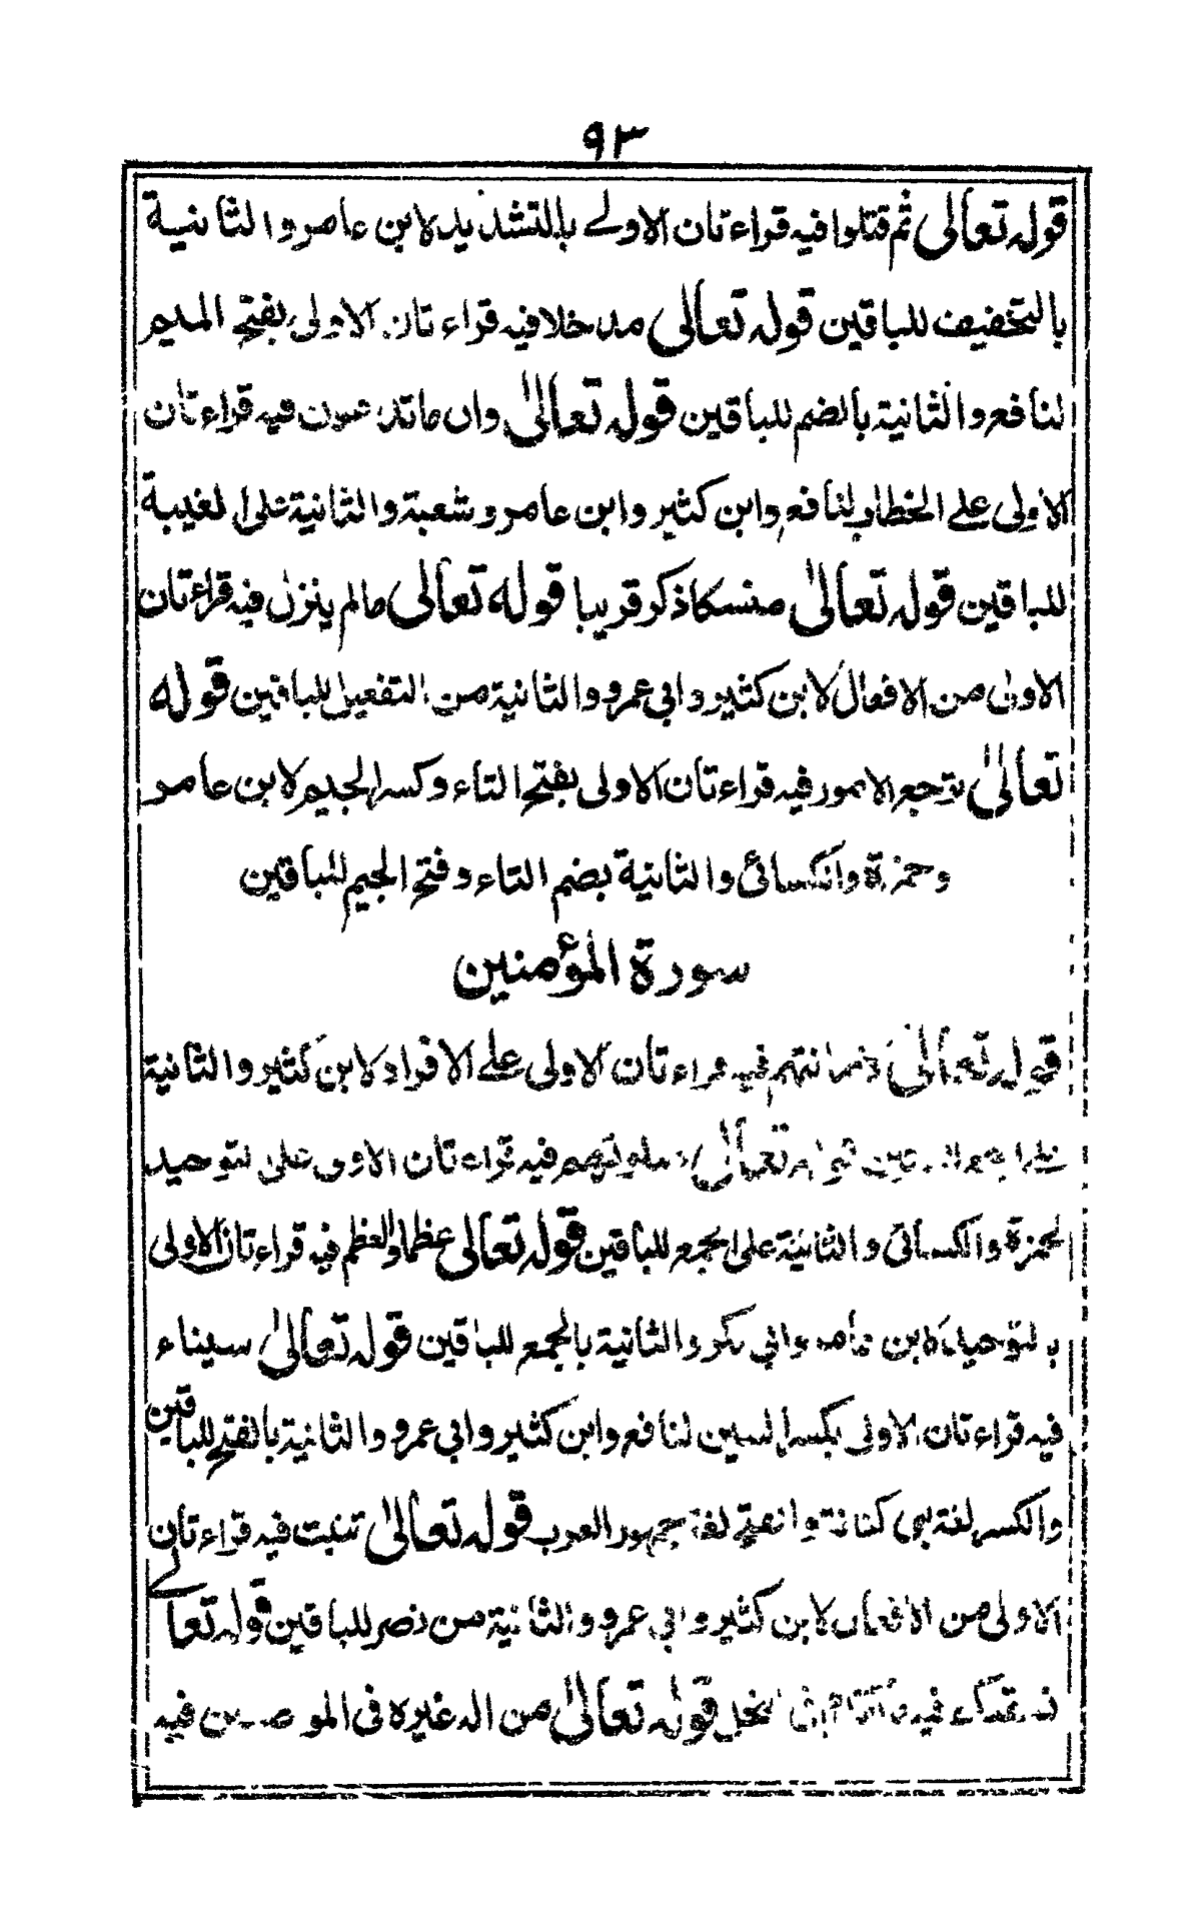 ٩٣
قوله تعالى ثم قتلوا فيه قراءتان الاولے بالتشديد لابن عامر والثانية
بالتخفيف للباقين قوله تعالى مدخلا فيه قراءتان الاولى بفتح الميم
لنافع والثانية بالضم للباقين قوله تعالىٰ وان ماتدعون فيه قراءتان
الاولى علے الخطاب لنافع وابن كثير وابن عامر وشعبة والثانية على الغيبة
للباقين قوله تعالىٰ منسكا ذكر قريبا قوله تعالى مالم ينزل فيه قراءتان
الاولى من الافعال لابن كثير وابي عمرو والثانية من التفعيل للباقين قوله
تعالىٰ ترجع الامور فيه قراءتان الاولى بفتح التاء وكسر الجيم لابن عامر
وحمزة والكسائي والثانية بضم التاء وفتح الجيم للباقين
سورة المؤمنين
قوله تعالىٰ فيه قراءتان الاولى علے الافراد لابن كثير والثانية
تعالىٰ فيه قراءتان الاولى على التوحيد
لحمزة والكسائي والثانية على الجمع للباقين قوله تعالى عظما والعظم فيه قراءتان الاولى
بالتوحيد لابن عامر وابي بكر والثانية بالجمع للباقين قوله تعالىٰ سيناء
فيه قراءتان الاولى بكسر السين لنافع وابن كثير وابي عمرو والثانية بالفتح للباقين
والكسر لغة بني كنانة والفتح لغة جمهور العرب قوله تعالىٰ تنبت فيه قراءتان
الاولى من الافعال لابن كثير وابي عمرو والثانية من نصر للباقين قوله تعالے
فيه النحل قوله تعالىٰ من اله غيره فى الموضعين فيه